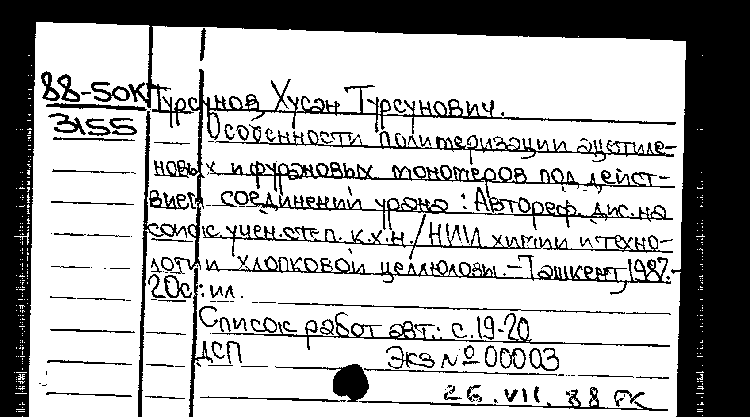 88-50К
3155
Турсунов Хусан Турсунович.
Особенности полимеризации ацетиле-
новых и фурановых мономеров под дейст-
вием соединений урана : Автореф. дис. на
соиск. учен. степ. к.х.н. / НИИ химии и техно-
логии хлопковой целлюлозы. – Ташкент, 1987. –
20 с. : ил.
Список работ авт.: с. 19-20
ДСП Экз № 00003
26. VII. 88 РК